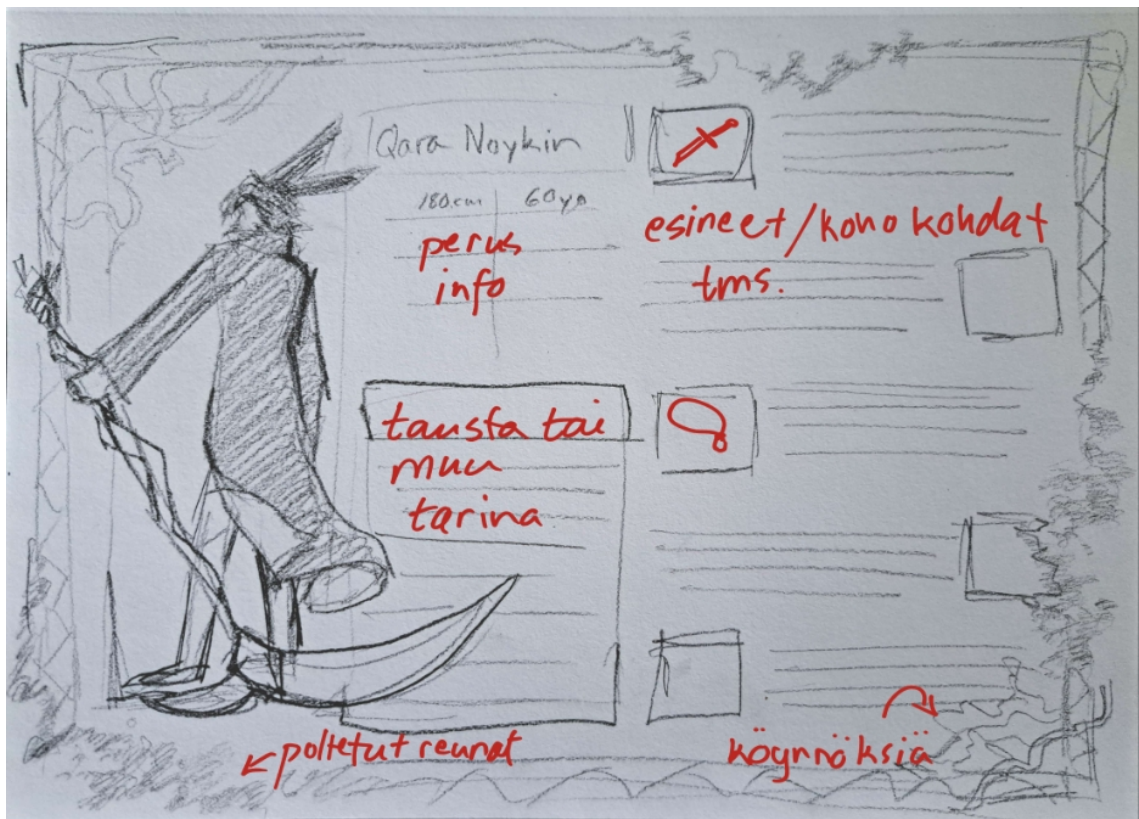 Qara Noykin
180cm 60yo
perus
info
esineet/kohokohdat
tms.
tausta tai
muu
tarina
poltetut reunat
köynnöksiä